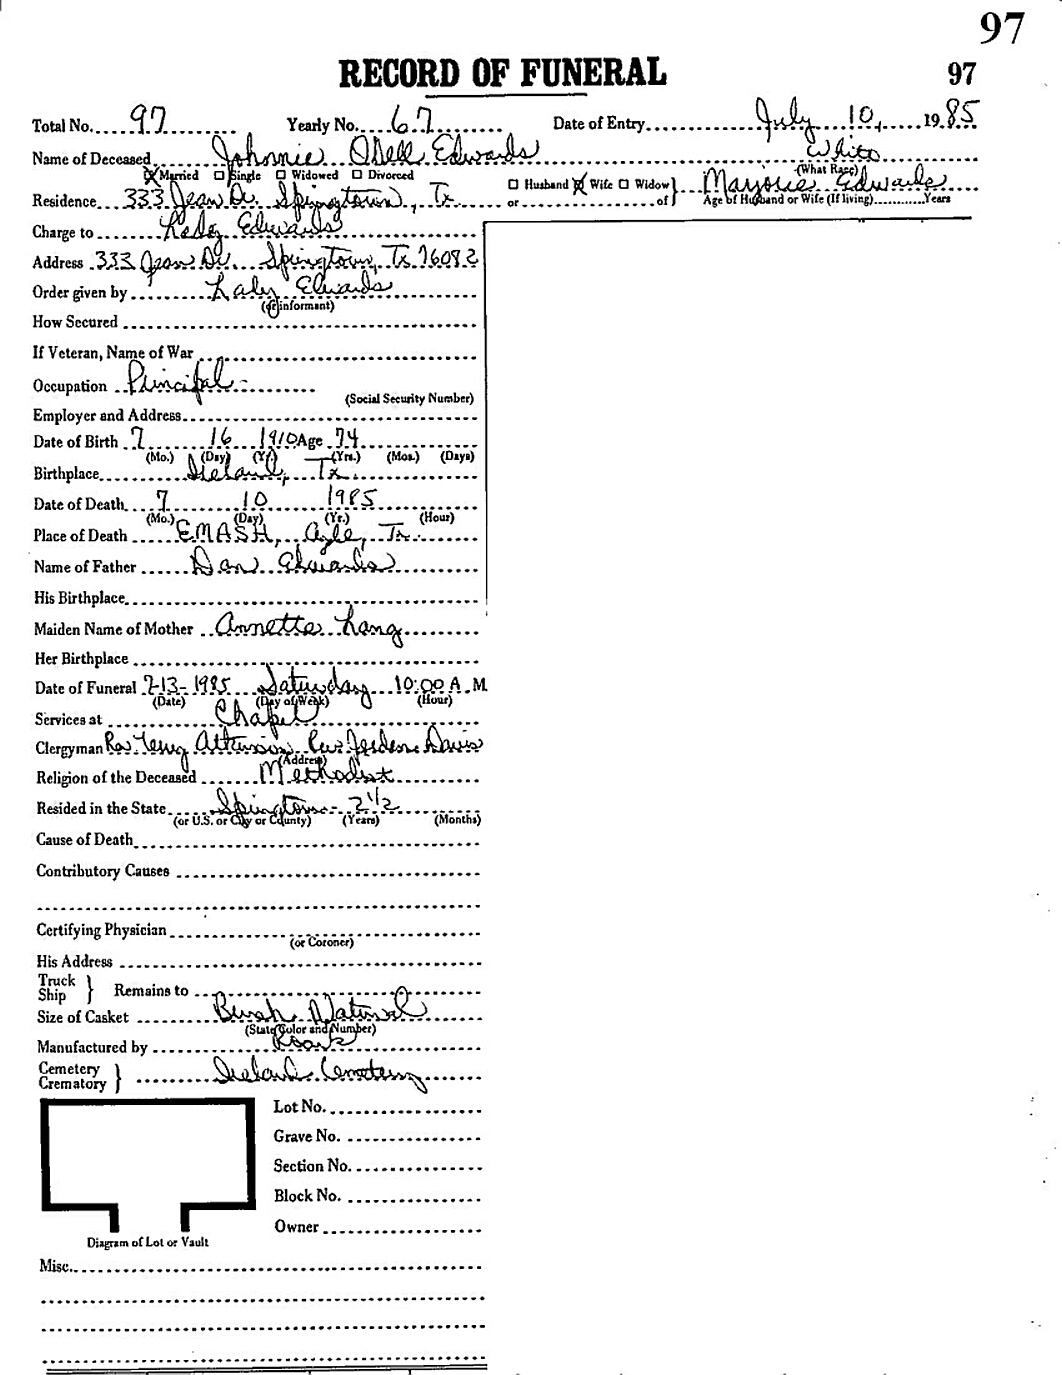 97
RECORD OF FUNERAL 97
Total No. 97 Yearly No. 67 Date of Entry July 10, 1985
Name of Deceased Johnnie Odell Edwards White
(What Race)
Married Single Widowed Divorced
Husband Wife Widow } of Marjorie Edwards
Residence 333 Jean Dr. Springtown, Tx or
Age of Husband or Wife (If living) Years
Charge to Edwards
Address 333 Jean Dr. Springtown, Tx 76082
Order given by Edwards
(or informant)
How Secured
If Veteran, Name of War
Occupation Principal -
(Social Security Number)
Employer and Address
Date of Birth 7 16 1910 Age 74
(Mo.) (Day) (Yr.) (Yrs.) (Mos.) (Days)
Birthplace Ireland, Tx.
Date of Death 7 10 1985
(Mo.) (Day) (Yr.) (Hour)
Place of Death EMASH, Azle, Tx.
Name of Father Dan Edwards
His Birthplace
Maiden Name of Mother Annette Lang
Her Birthplace
Date of Funeral 7-13-1985 Saturday 10:00 A.M
(Date) (Day of Week) (Hour)
Services at Chapel
Clergyman Rev. Terry Atkinson, Rev. Davis
(Address)
Religion of the Deceased Methodist
Resided in the State Springtown - 2 1/2
(or U.S. or City or County) (Years) (Months)
Cause of Death
Contributory Causes
Certifying Physician
(or Coroner)
His Address
Truck
Ship } Remains to
Size of Casket Natural
(State Color and Number)
Manufactured by
Cemetery
Crematory } Ireland Cemetery
Lot No.
Grave No.
Section No.
Block No.
Owner
Diagram of Lot or Vault
Misc.